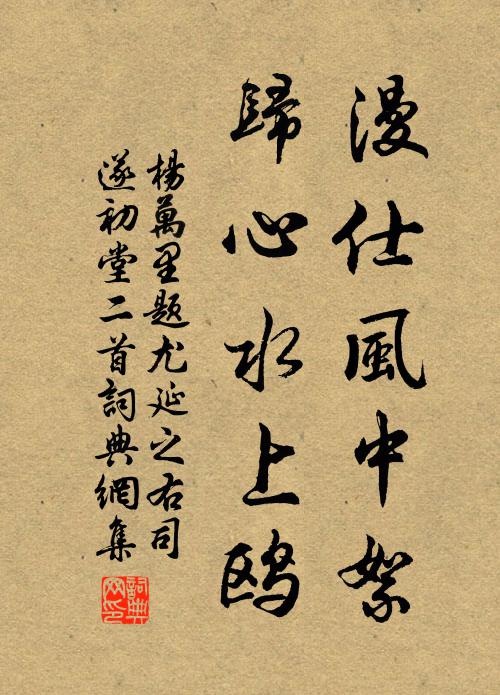 漫仕風中絮
歸心水上鸥
楊萬里題尤延之右司
遂初堂二首詞典網集
詞典
网印